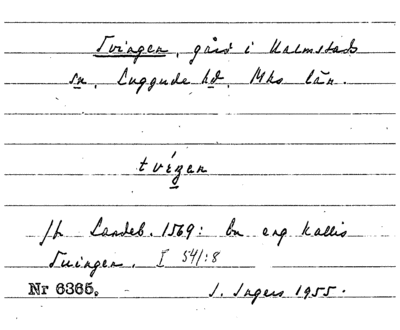 Tvingen, gård i Kalmstads
sn, Luggude hd, Mhs län.
tvíŋen
Jb Landeb. 1569: En eng kallis
Tuingen. I 541:8
Nr 6365. I. Ingers 1955.